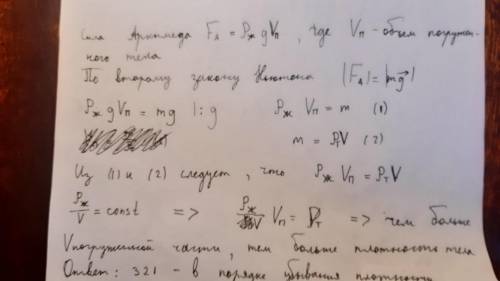 Сила Архимеда F_A = ρ_ж g V_п , где V_п - объем погружен-
ного тела
По второму закону Ньютона |F_A| = |mg⃗|
ρ_ж g V_п = mg |:g ρ_ж V_п = m (1)
m = ρ_т V (2)
Из (1) и (2) следует, что ρ_ж V_п = ρ_т V
ρ_ж/V = const => ρ_ж/V V_п = ρ_т => чем больше
V погружённой части, тем больше плотность тела
Ответ: 321 - в порядке убывания плотности